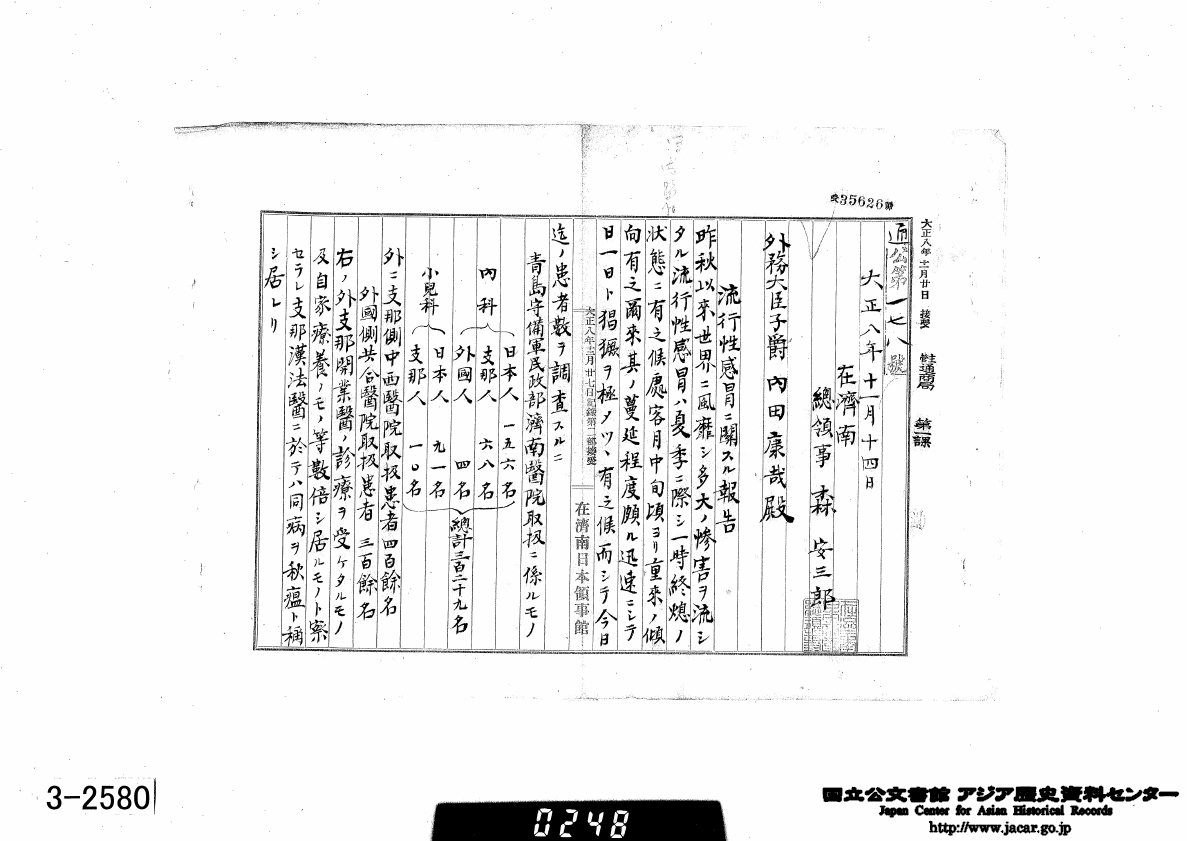 35626
大正八年十一月廿日 接受
主管通商局
第一課
通公第一七八號
大正八年十一月十四日
在濟南
總領事 森 安三郎
外務大臣子爵 內田康哉殿
流行性感冒ニ關スル報告
昨秋以來世界ニ風靡シ多大ノ慘害ヲ流シ
タル流行性感冒ハ夏季ニ際シ一時終熄ノ
狀態ニ有之候處客月中旬頃ヨリ重來ノ傾
向有之爾來其ノ蔓延程度頗ル迅速ニシテ
日一日ト猖獗ヲ極メツヽ有之候而シテ今日
大正八年十一月廿七日記錄第二部接受
在濟南日本領事館
迄ノ患者數ヲ調查スルニ
青島守備軍民政部濟南醫院取扱ニ係ルモノ
內科
日本人 一五六名
支那人 六八名
外國人 四名
小兒科
日本人 九一名
支那人 一〇名
總計三百二十九名
外ニ支那側中西醫院取扱患者四百餘名
外國側共合醫院取扱患者 三百餘名
右ノ外支那開業醫ノ診療ヲ受ケタルモノ
及自家療養ノモノ等數倍シ居ルモノト察
セラレ支那漢法醫ニ於テハ同病ヲ秋瘟ト稱
シ居レリ
3-2580
0248
国立公文書館 アジア歴史資料センター
Japan Center for Asian Historical Records
http://www.jacar.go.jp